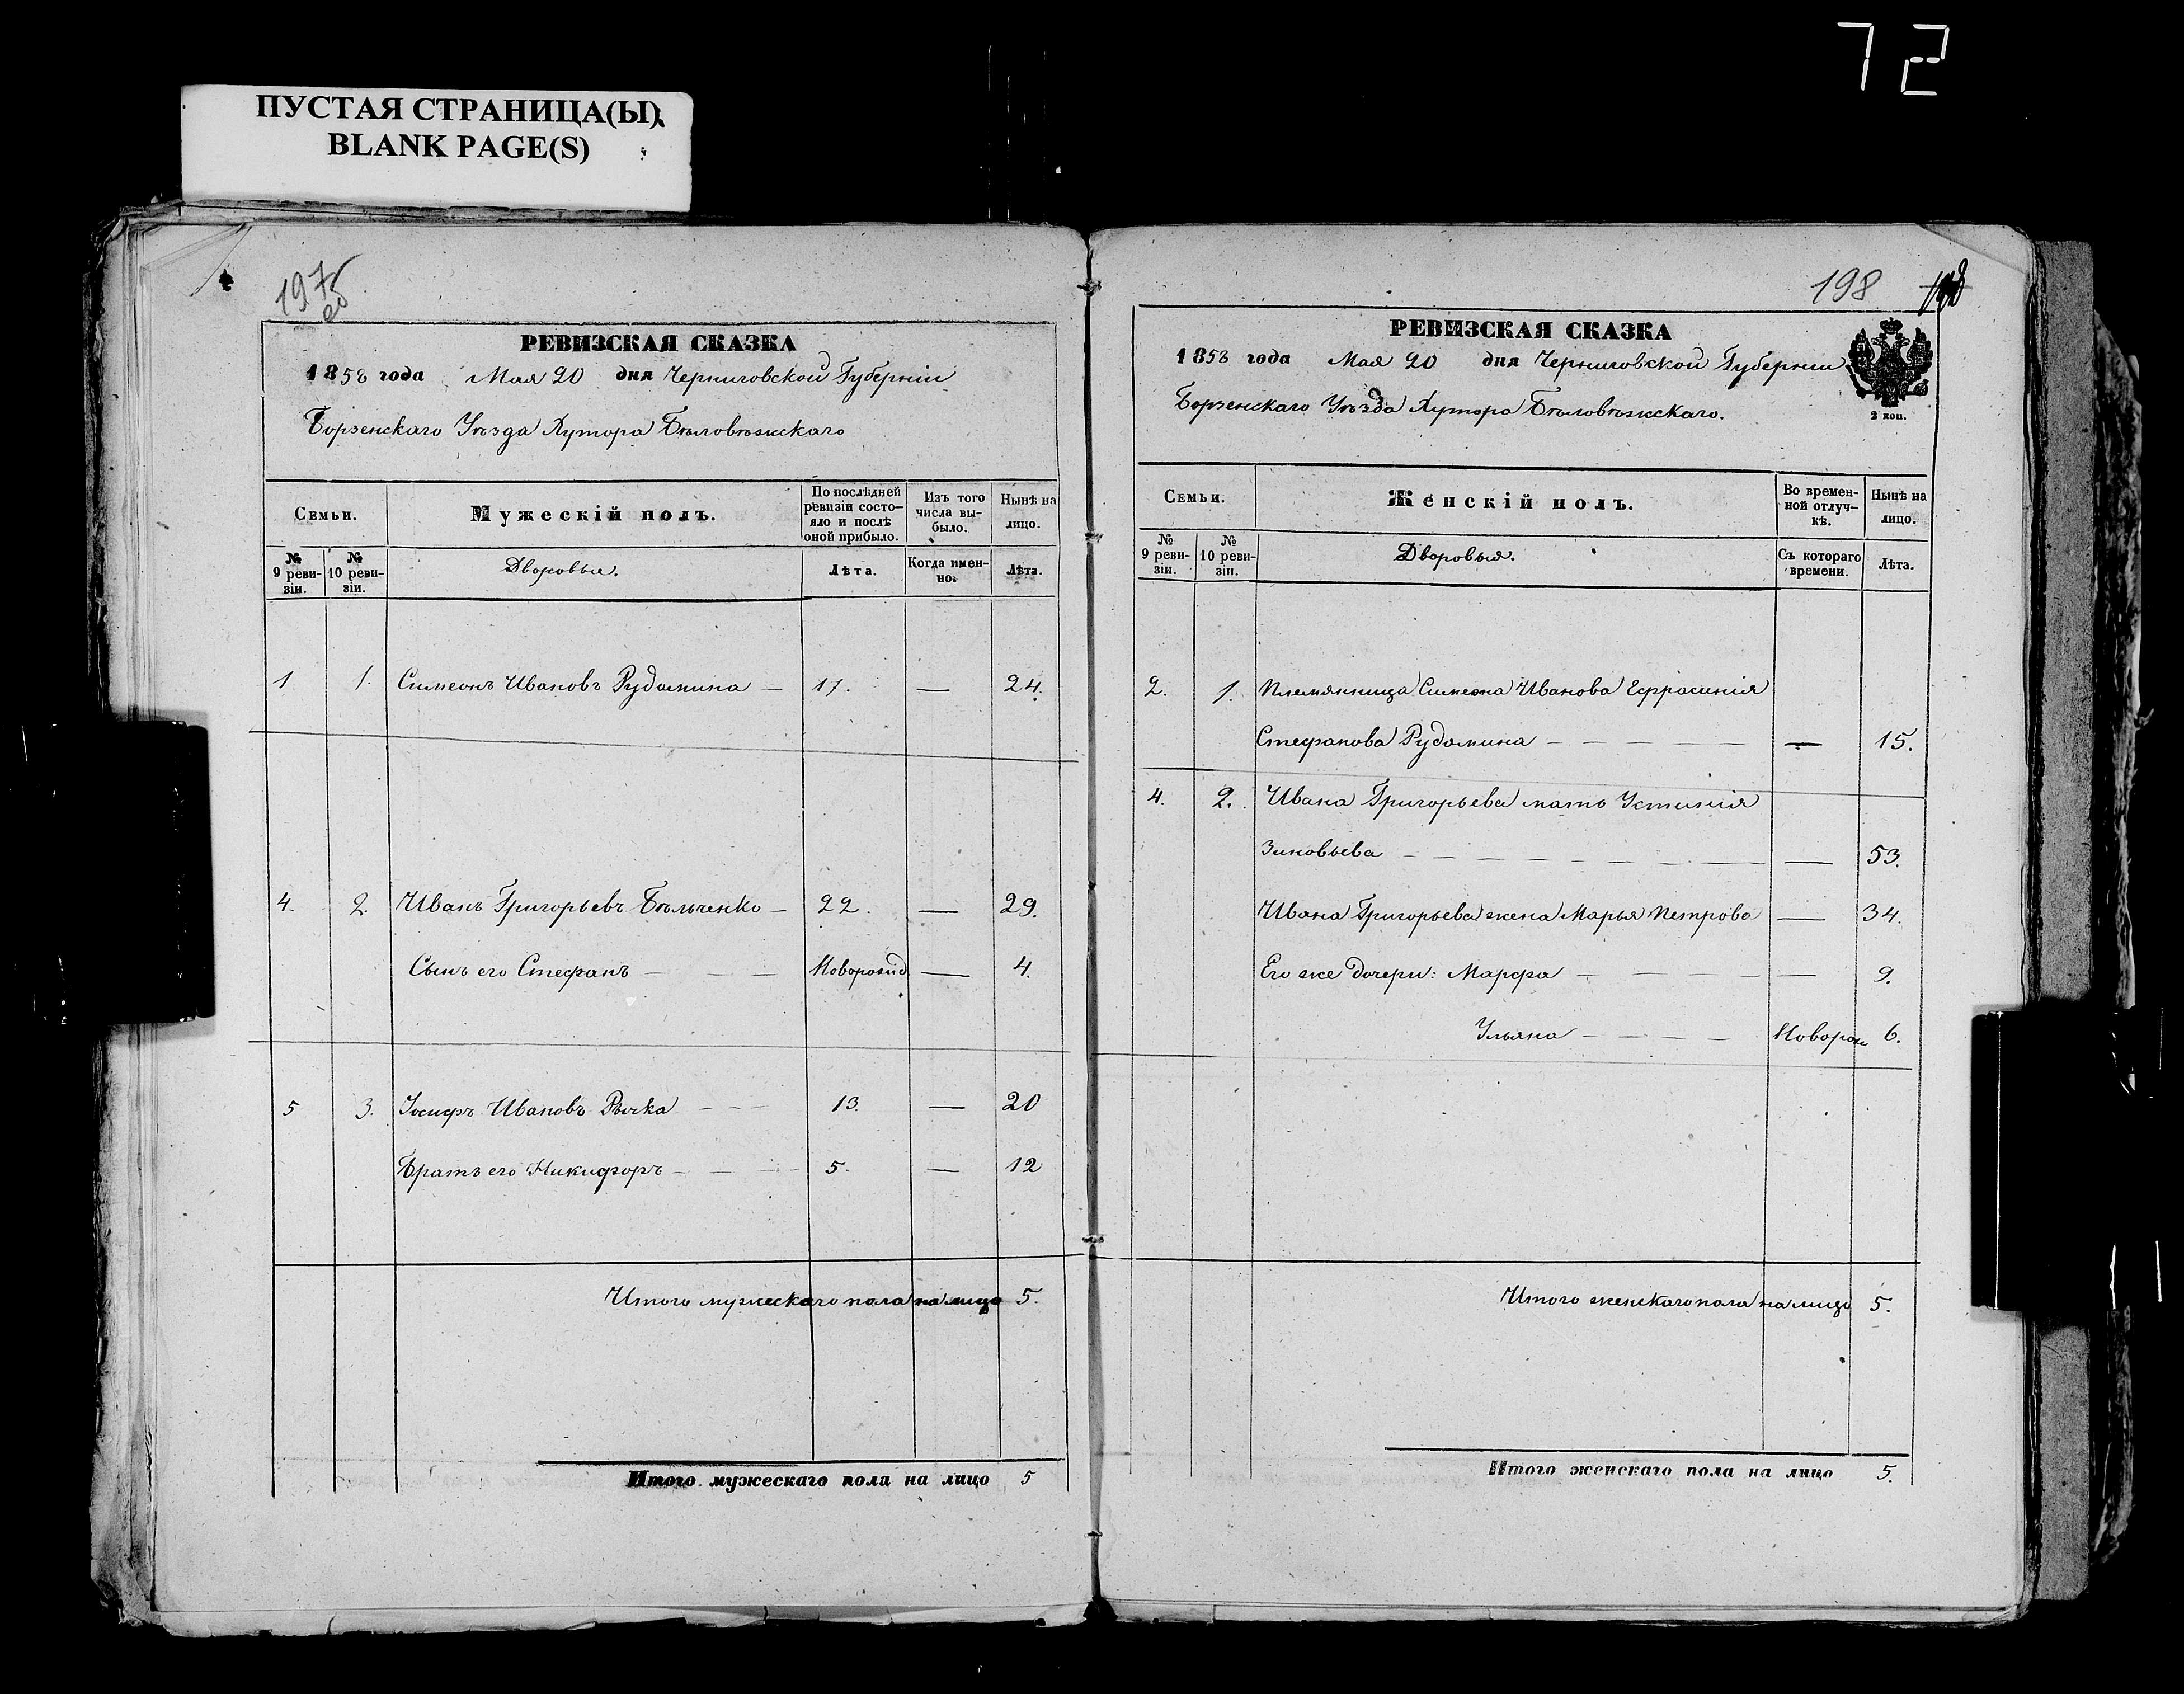 72
ПУСТАЯ СТРАНИЦА(Ы)
BLANK PAGE(S)
197
об
РЕВИЗСКАЯ СКАЗКА
1858 года Мая 20 дня Черниговской Губерніи
Борзенскаго Уѣзда Хутора Бѣловѣжскаго
Семьи.
Мужескій полъ.
По послѣдней
ревизіи состо-
яло и послѣ
оной прибыло.
Изъ того
числа вы-
было.
Нынѣ на
лицо.
№
9 реви-
зіи.
№
10 реви-
зіи.
Дворовые.
Лѣта.
Когда имен-
но.
Лѣта.
1 1. Симеонъ Ивановъ Рудомина — 17. — 24.
4. 2. Иванъ Григорьевъ Бѣльченко — 22. — 29.
Сынъ его Стефанъ — — —Новорожд — 4.
5 3. Іосифъ Ивановъ Рѣчка — — — 13. — 20
Братъ его Никифоръ — — — 5. — 12
Итого мужескаго пола на лицо 5.
Итого мужескаго пола на лицо 5
198
РЕВИЗСКАЯ СКАЗКА
1858 года Мая 20 дня Черниговской Губерніи
Борзенскаго Уѣзда Хутора Бѣловѣжскаго.
2 коп.
Семьи.
Женскій полъ.
Во времен-
ной отлуч-
кѣ.
Нынѣ на
лицо.
№
9 реви-
зіи.
№
10 реви-
зіи.
Дворовыя.
Съ котораго
времени.
Лѣта.
2. 1. Племянница Симеона Иванова Ефросинія
Стефанова Рудомина — — — — — — 15.
4. 2. Ивана Григорьева мать Устинія
Зиновьева — — — — — — — — — 53.
Ивана Григорьева жена Марья Петрова — 34.
Его же дочери: Марфа — — — — — 9.
Ульяна — — — — Новорож 6.
Итого женскаго пола на лицо 5.
Итого женскаго пола на лицо 5.